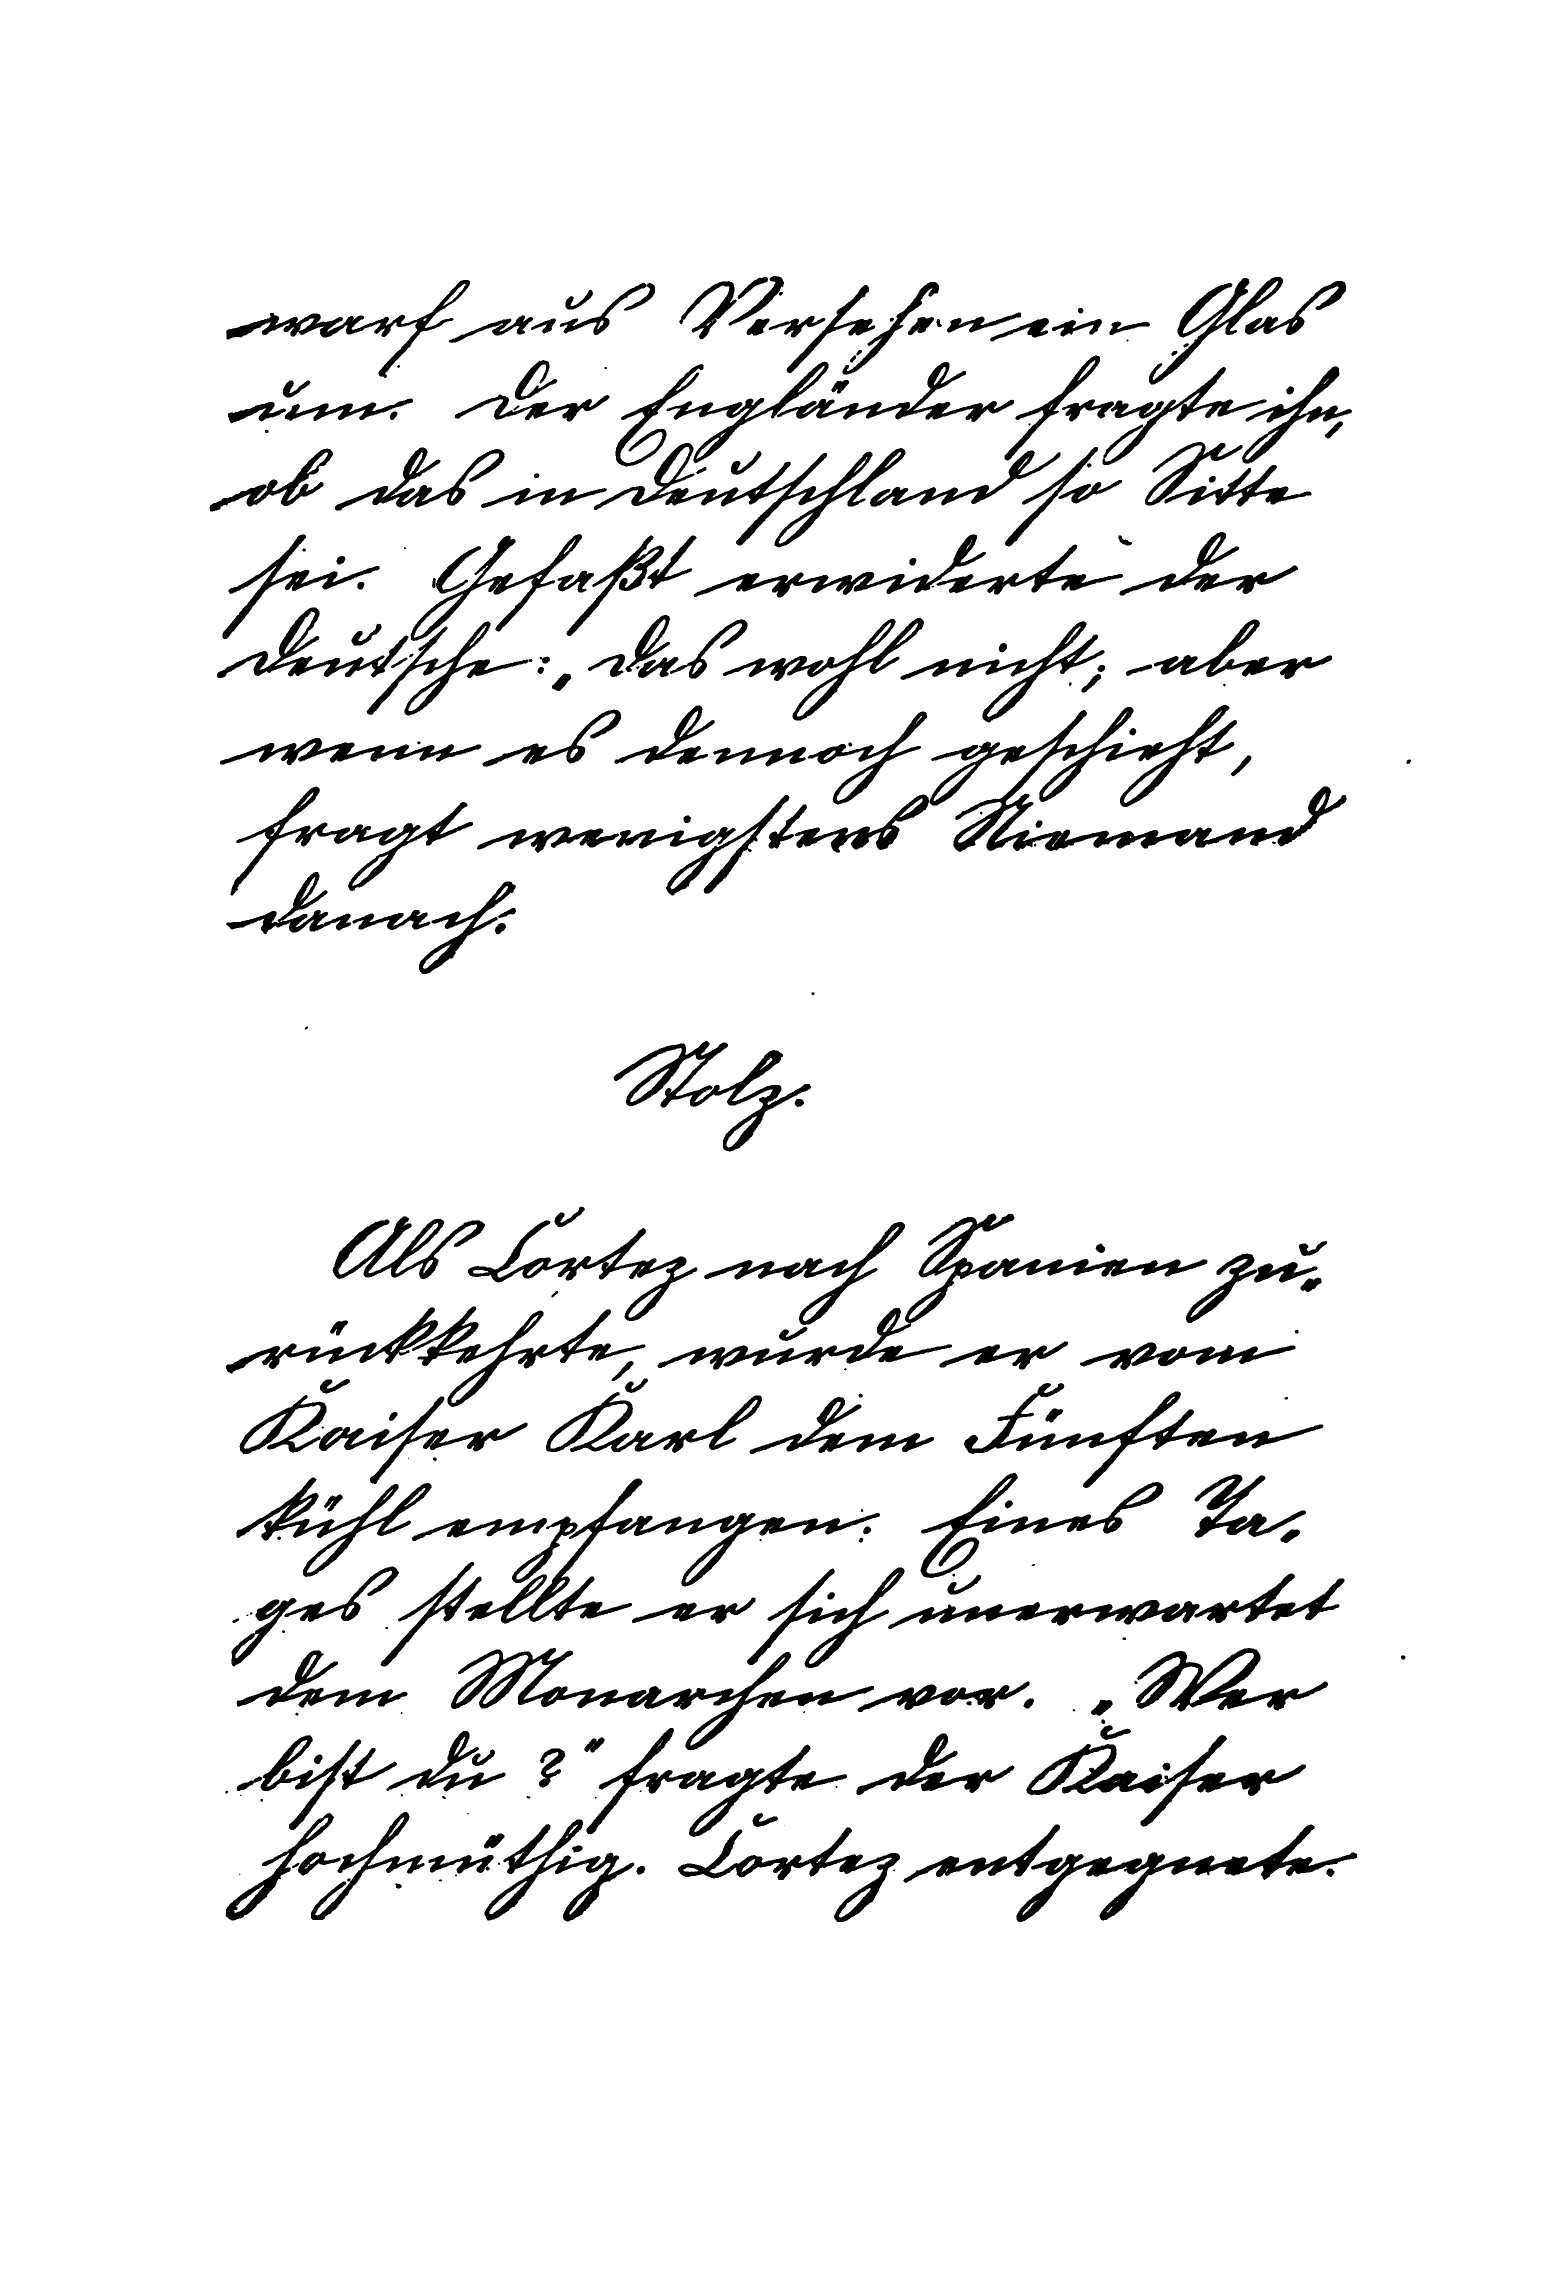 warf aus Versehen ein Glas
um. Der Engländer fragte ihn,
ob das in Deutschland so Sitte
sei. Gefaßt erwiderte der
Deutsche: „Das wohl nicht; aber
wenn es dennoch geschieht,
fragt wenigstens Niemand
danach.
Stolz.
Als Cortez nach Spanien zu„
rückkehrte, wurde er vom
Kaiser Karl dem Fünften
kühl empfangen. Eines Ta„
ges stellte er sich unerwartet
dem Monarchen vor. „Wer
bist du?" fragte der Kaiser
hochmüthig. Cortez entgegnete.